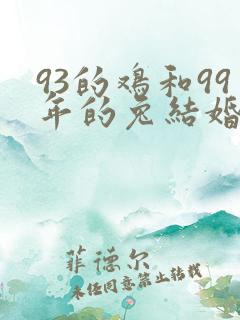 93的鸡和99
年的兔结婚
菲德尔
未经同意禁止转载